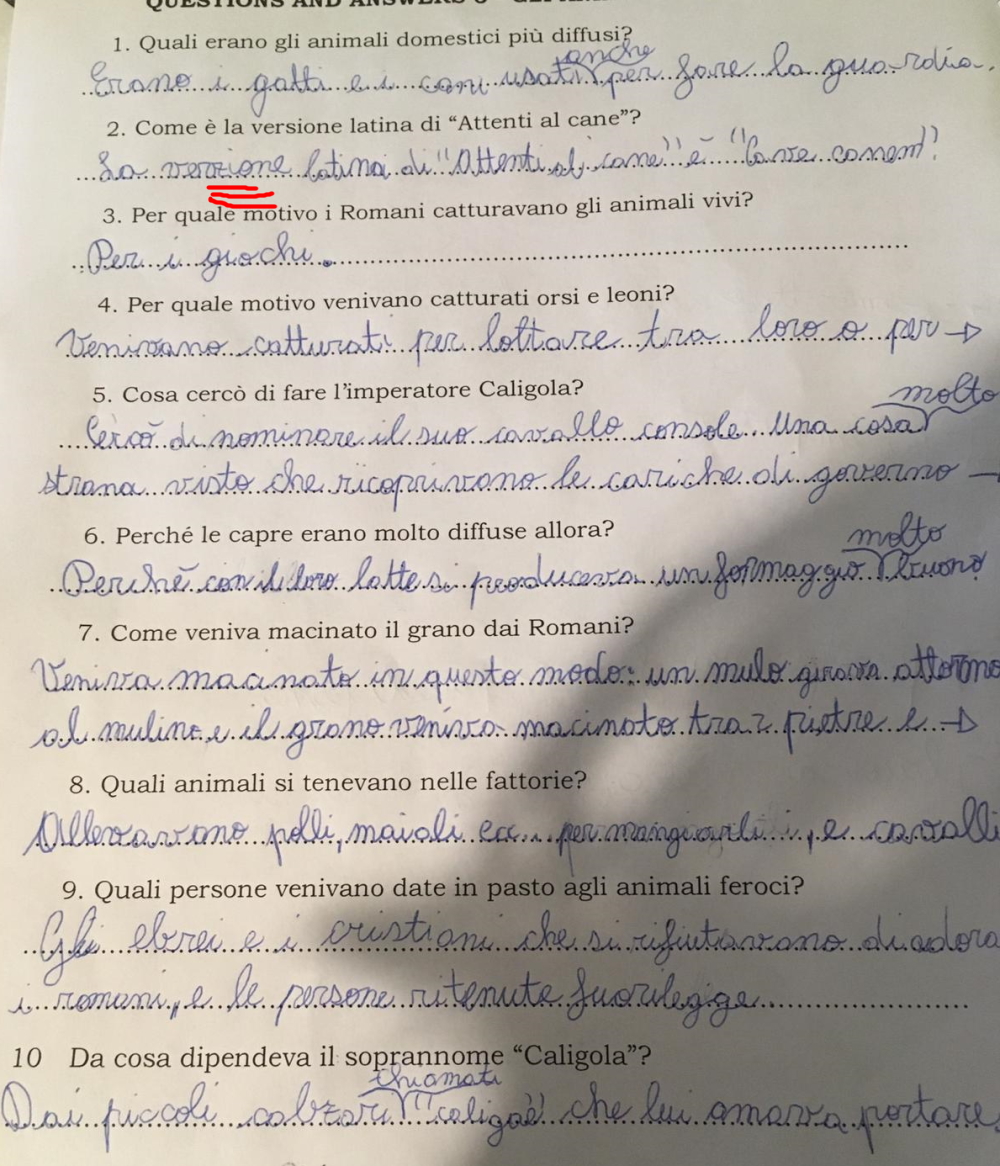 QUESTIONS AND ANSWERS
1. Quali erano gli animali domestici più diffusi?
anche
Erano i gatti e i cani usati per fare la guardia.
2. Come è la versione latina di "Attenti al cane"?
La verzione latina di "Attenti al cane" è "Cave canem".
3. Per quale motivo i Romani catturavano gli animali vivi?
Per i giochi.
4. Per quale motivo venivano catturati orsi e leoni?
Venivano catturati per lottare tra loro o per →
5. Cosa cercò di fare l'imperatore Caligola?
molto
Cercò di nominare il suo cavallo console. Una cosa
strana visto che ricoprivano le cariche di governo →
6. Perché le capre erano molto diffuse allora?
molto
Perché con il loro latte si produceva un formaggio buono
7. Come veniva macinato il grano dai Romani?
Veniva macinato in questo modo: un mulo girava attorno
al mulino e il grano veniva macinato tra 2 pietre e →
8. Quali animali si tenevano nelle fattorie?
Allevavano polli, maiali ecc... per mangiarli, e cavalli
9. Quali persone venivano date in pasto agli animali feroci?
Gli ebrei e i cristiani che si rifiutavano di adora
i romani, e le persone ritenute fuorilegge
10 Da cosa dipendeva il soprannome "Caligola"?
chiamati
Dai piccoli calzari "caligae" che lui amava portare.